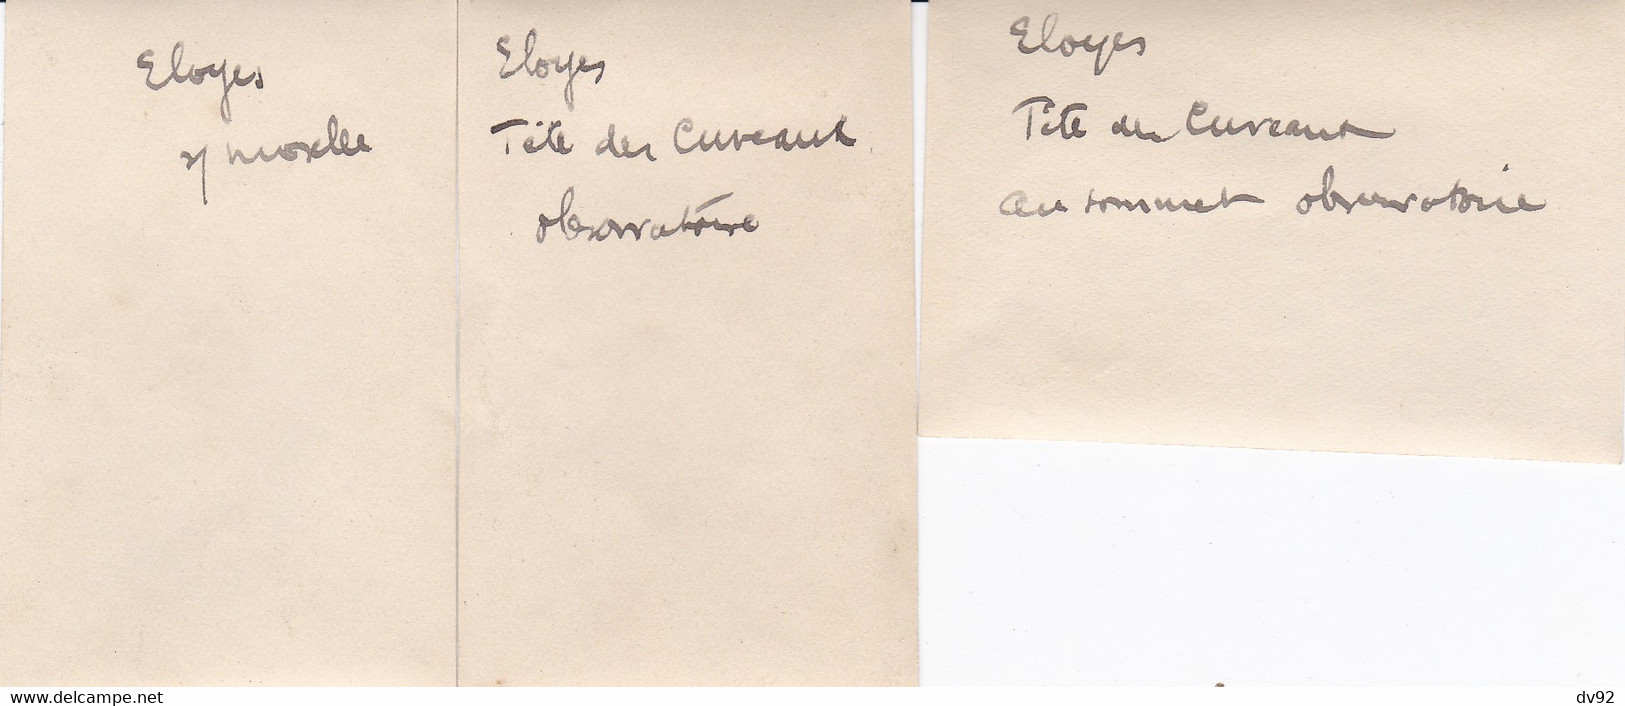 Eloyes
s/ Moselle
Eloyes
Tête des Cuveaux
observatoire
Eloyes
Tête des Cuveaux
au sommet observatoire
www.delcampe.net
dv92